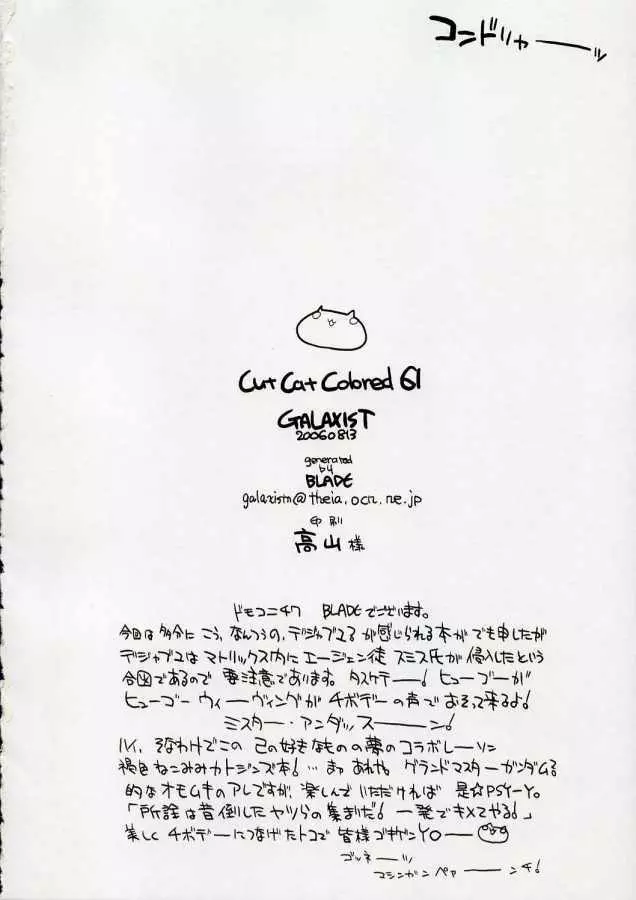 コンドリャーッ
Cut Cat Colored 61
GALAXIST
20060813
generated
by
BLADE
galaxistn@theia.ocn.ne.jp
印刷
高山 様
ドモコニチワ BLADEでございます。
今回は多分に こう、なんつうの、デジャブュる が感じられる本がでも申したが
デジャブュは マトリックス内に エージェン徒 スミス氏が 侵入したという
合図であるので 要注意であります。タスケテー! ヒューゴーが
ヒューゴー ウィーヴィングが チボデーの声で おそって来るよ!
ミスター・アンダッスーーン!
そなわけでこの 己の好きなものの夢のコラボレーソン
褐色ねこみみカトジンズ本! … まァ あれや。グランドマスターガンダムる
的なオモムキのアレですが、楽しんでいただければ 是☆PSY-YO。
「所詮は昔倒したヤツらの集まりだ! 一発でキメてやる!」
美しく チボデーにつなげたトコで 皆様ゴキゲンYOーー
ゴルネーッ
マシンガン ペァーーンチ!